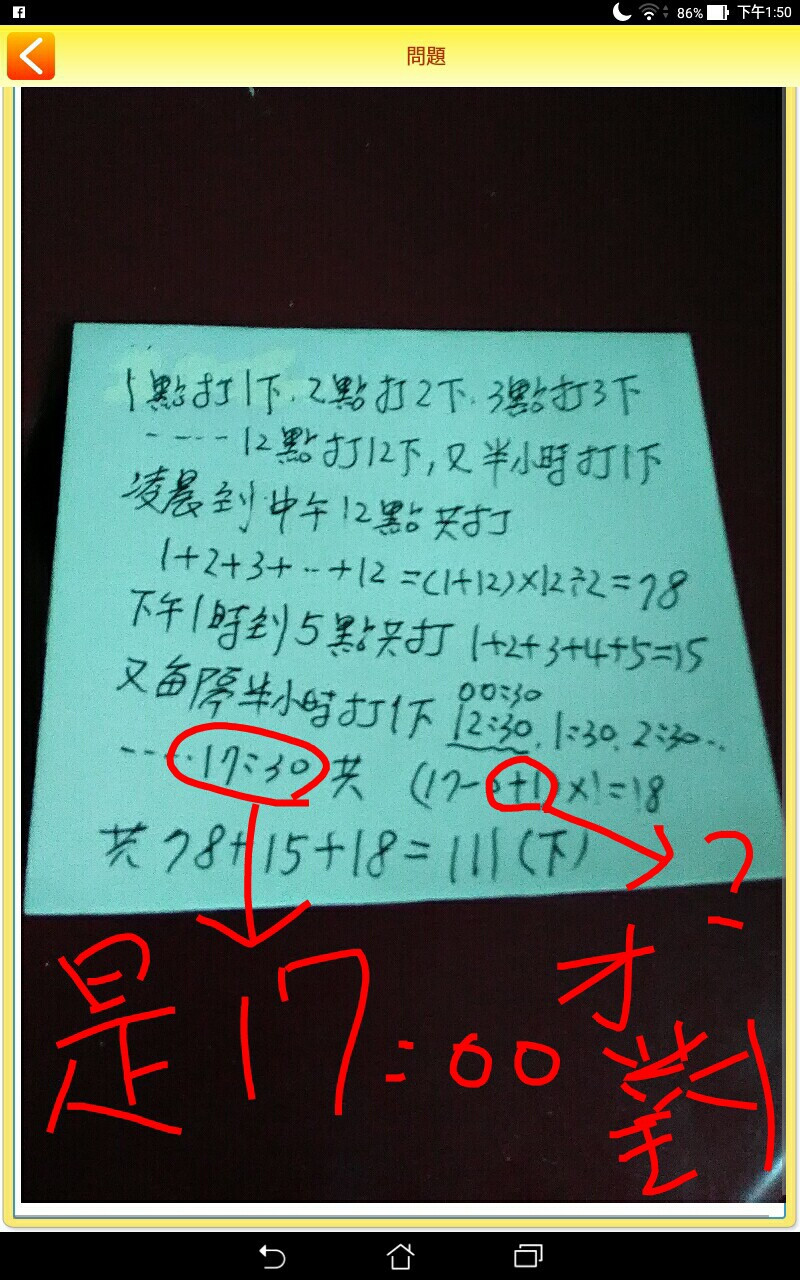 86% 下午1:50
問題
1點打1下.2點打2下.3點打3下
‑‑‑‑12點打12下,又半小時打1下
凌晨到中午12點共打
1+2+3+‥+12=(1+12)×12÷2=78
下午1時到5點共打 1+2+3+4+5=15
又每隔半小時打1下 00:30
12:30,1:30,2:30‥
‑‑‑‑17:30共 (17-0+1)×1=18
共78+15+18=111(下)
?
是17:00才對